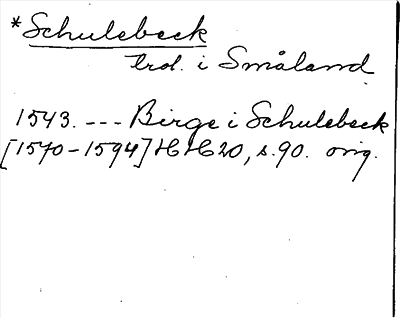 *Schulebeck
trol. i Småland
1543. --- Birge i Schulebeck
[1570-1594] HH 20, s. 90. orig.